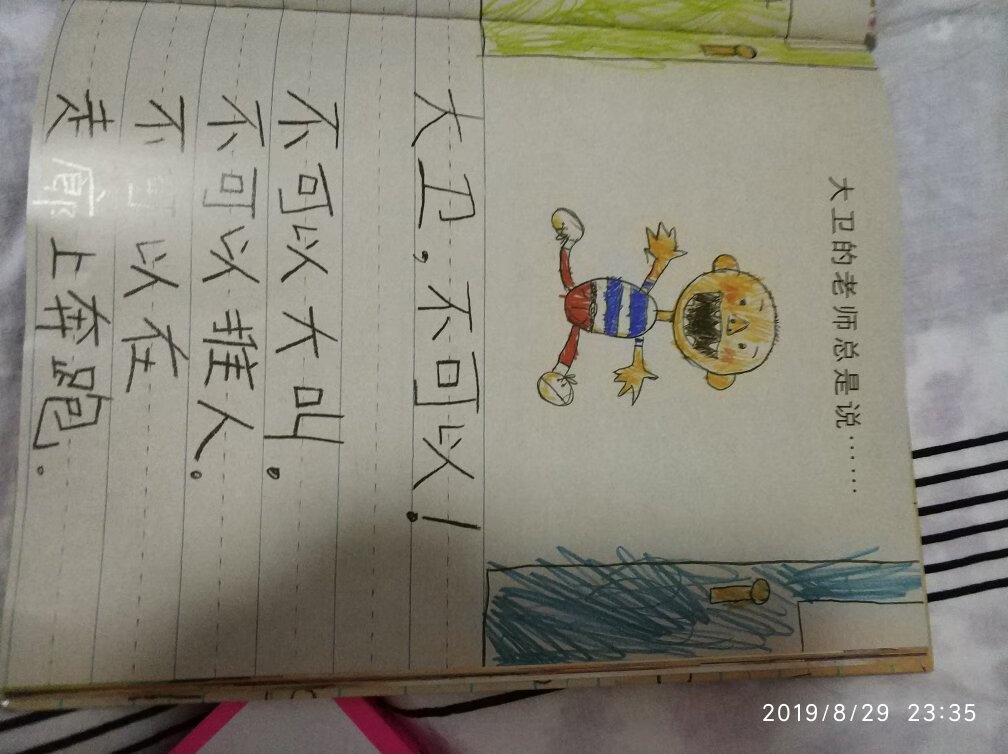 大卫的老师总是说……
大卫,不可以!
不可以大叫.
不可以推人.
不可以在
走廊上奔跑.
2019/8/29 23:35